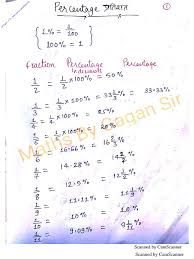 Percentage प्रतिशत 1
1% = 1/100
100% = 1
Fraction Percentage in decimals Percentage
1/2 = 1/2 × 100% = 50%
1/3 = 1/3 × 100% = 33.33% 33 1/3%
1/4 = 1/4 × 100% = 25%
1/5 = 1/5 × 100% = 20%
1/6 = 16.66% = 16 2/3%
1/7 = 14.28% = 14 2/7%
1/8 = 12.5% = 12 1/2%
1/9 = 11.11% = 11 1/9%
1/10 = 10%
1/11 = 9.09% = 9 1/11%
Maths By Gagan Sir
Scanned by CamScanner
Scanned by CamScanner